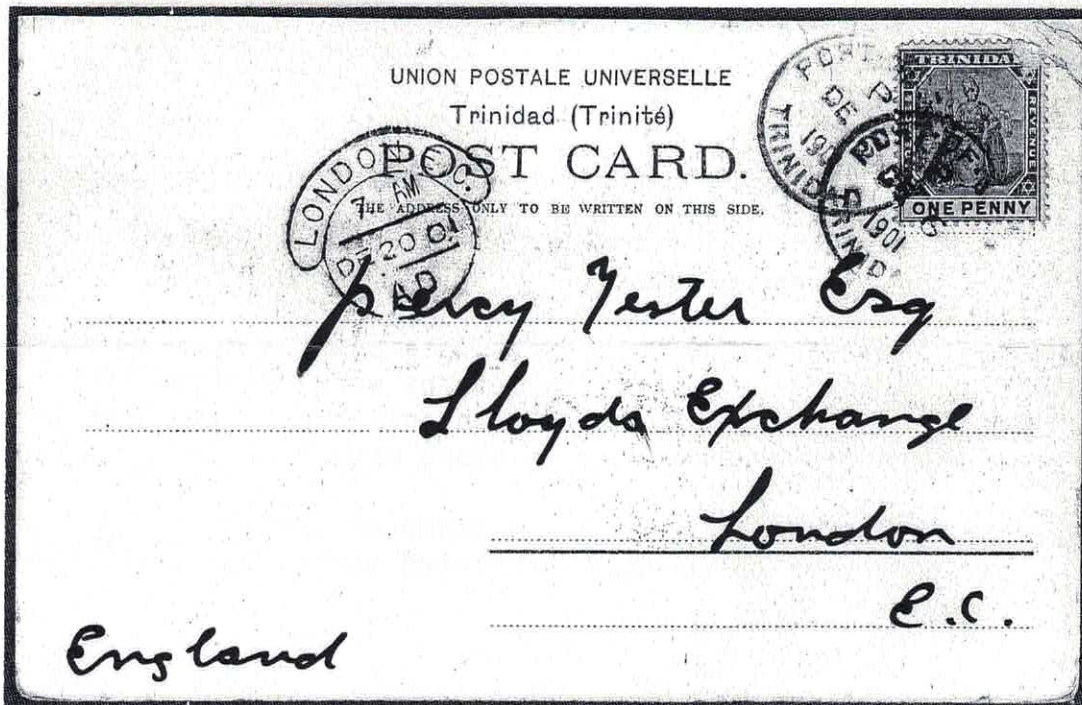 UNION POSTALE UNIVERSELLE
Trinidad (Trinité)
POST CARD.
THE ADDRESS ONLY TO BE WRITTEN ON THIS SIDE.
LONDON E.C.
7 AM
DE 20 01
AD
PORT
DE
TRINIDAD
1901
TRINIDA
REVENUE
ONE PENNY
Percy Yester Esq
Lloyds Exchange
London
E.C.
England